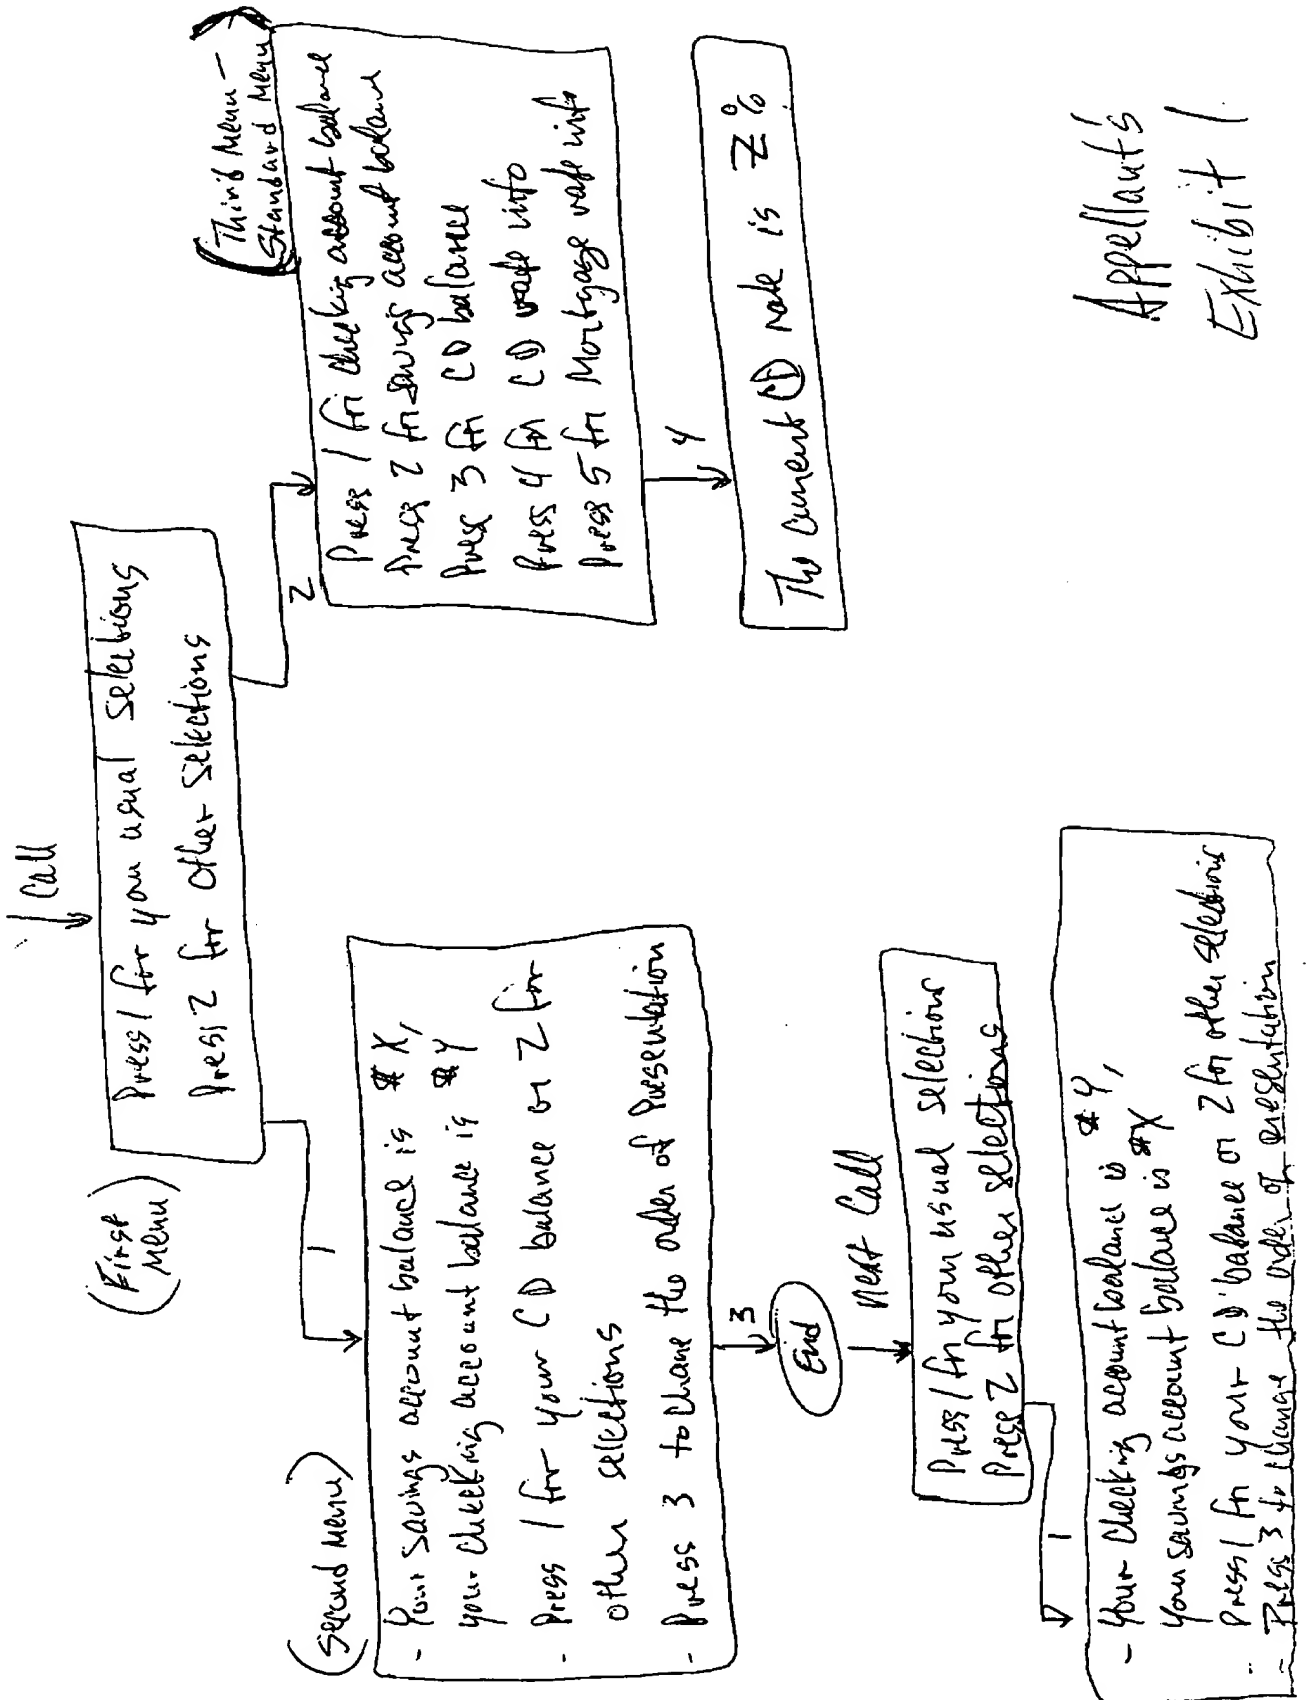 Call
(First
Menu)
Press 1 for your usual selections
Press 2 for other selections
1
2
(Second Menu)
- Your savings account balance is $X,
your checking account balance is $Y
- Press 1 for your CD balance or 2 for
other selections
- Press 3 to chane the order of Presentation
3
End
Next Call
Press 1 for your usual selections
Press 2 for other selections
1
- Your checking account balance is $Y,
your savings account balance is $X
- Press 1 for your CD balance or 2 for other selections
- Press 3 to change the order of presentation
(Third Menu -
Standard Menu)
Press 1 for checking account balance
Press 2 for savings account balance
Press 3 for CD balance
Press 4 for CD rate info
Press 5 for Mortgage rate info
4
The current CD rate is Z%
Appellant's
Exhibit 1